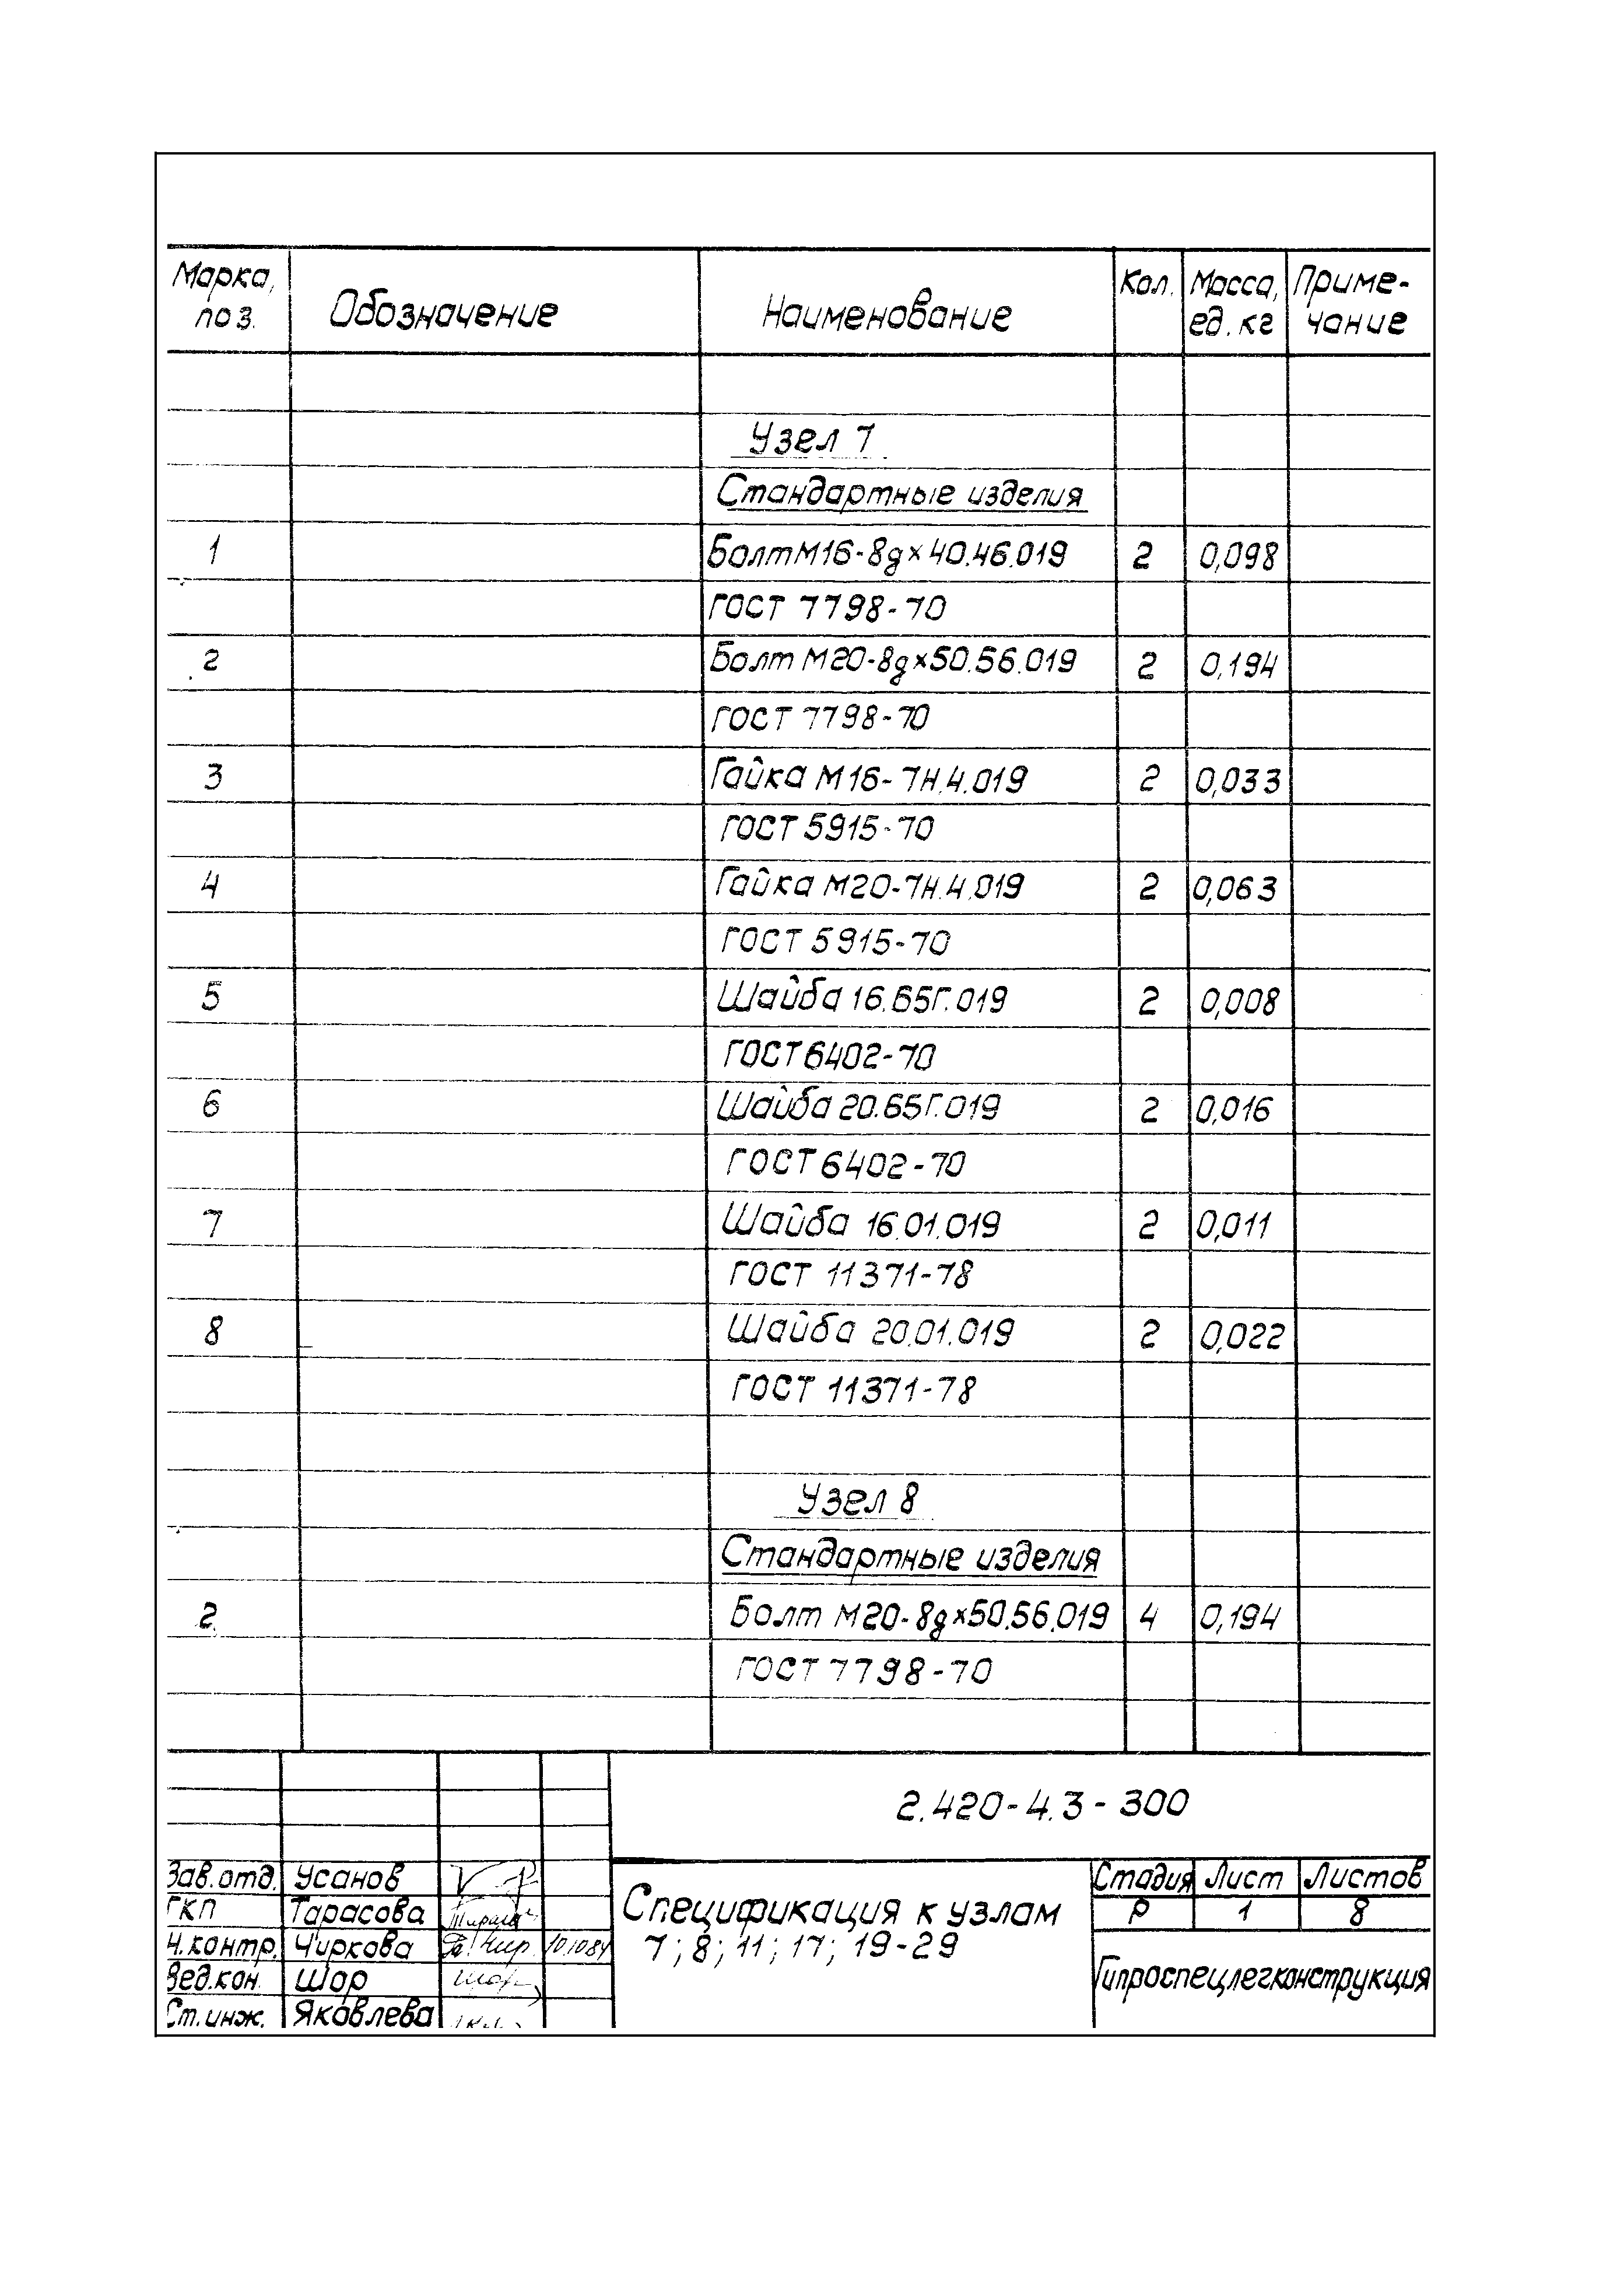 Марка, поз. Обозначение Наименование Кол. Масса, ед. кг Приме-чание
Узел 7
Стандартные изделия
1 Болт М16-8gх40.46.019 2 0,098
ГОСТ 7798-70
2 Болт М20-8gх50.56.019 2 0,194
ГОСТ 7798-70
3 Гайка М16-7Н.4.019 2 0,033
ГОСТ 5915-70
4 Гайка М20-7Н.4.019 2 0,063
ГОСТ 5915-70
5 Шайба 16.65Г.019 2 0,008
ГОСТ 6402-70
6 Шайба 20.65Г.019 2 0,016
ГОСТ 6402-70
7 Шайба 16.01.019 2 0,011
ГОСТ 11371-78
8 Шайба 20.01.019 2 0,022
ГОСТ 11371-78
Узел 8
Стандартные изделия
2 Болт М20-8gх50.56.019 4 0,194
ГОСТ 7798-70
2.420-4.3-300
Зав.отд. Усанов
ГКП Тарасова
Н.контр. Чиркова 10.10.84
Вед.кон. Шор
Ст.инж. Яковлева
Спецификация к узлам
7; 8; 11; 17; 19-29
Стадия Лист Листов
Р 1 8
Гипроспецлегконструкция